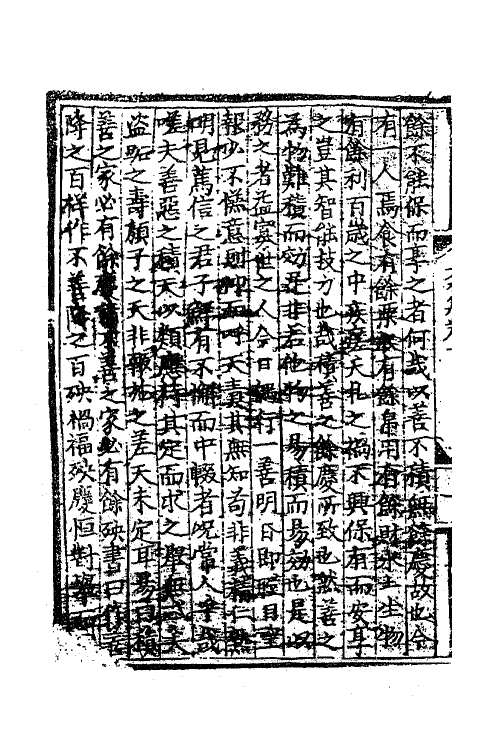 餘不能保而享之者何哉以善不積無餘慶故也今
有一人焉食有餘粟衣有餘帛用有餘財來玉生物
有餘利百歲之中疾 夭札之禍不興保有而安享
之豈其智能技力也哉積善之餘慶所致也然善之
為物難積而效遲非若他物之易積而易效也是以
務之者益寡世之人今日 行一善明日即 目望
報少不愜意則 而呼天責其無知苟非義精仁熟
明見篤信之君子鮮有不懈而中輟者況常人乎哉
嗟夫善惡之積天以類應 其定而求之 無 天
盜跖之壽顏子之夭非報施之差天未定耳易曰積
善之家必有餘慶積不善之家必有餘殃書曰作善
降之百祥作不善降之百殃禍福殃慶恒對